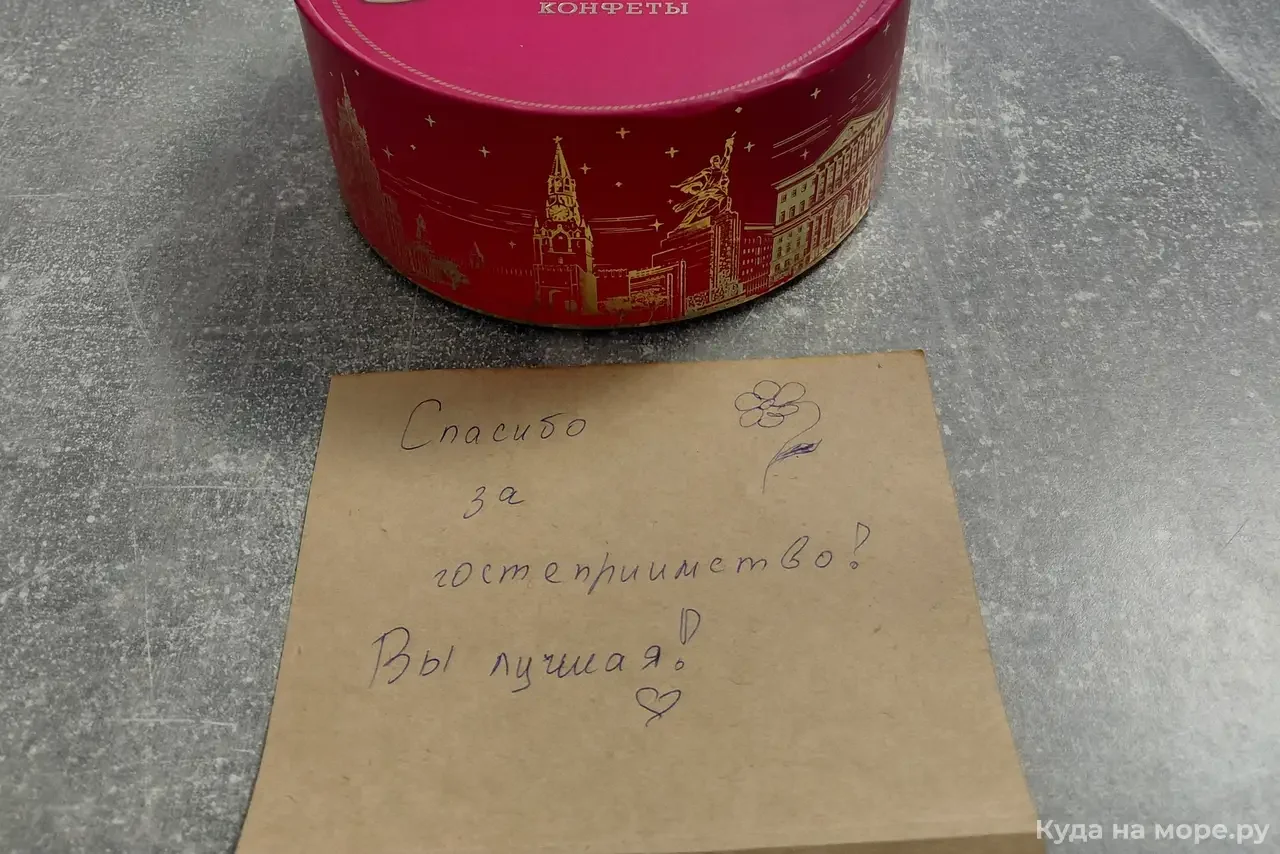 КОНФЕТЫ
Спасибо
за
гостеприимство!
Вы лучшая!
Куда на море.ру